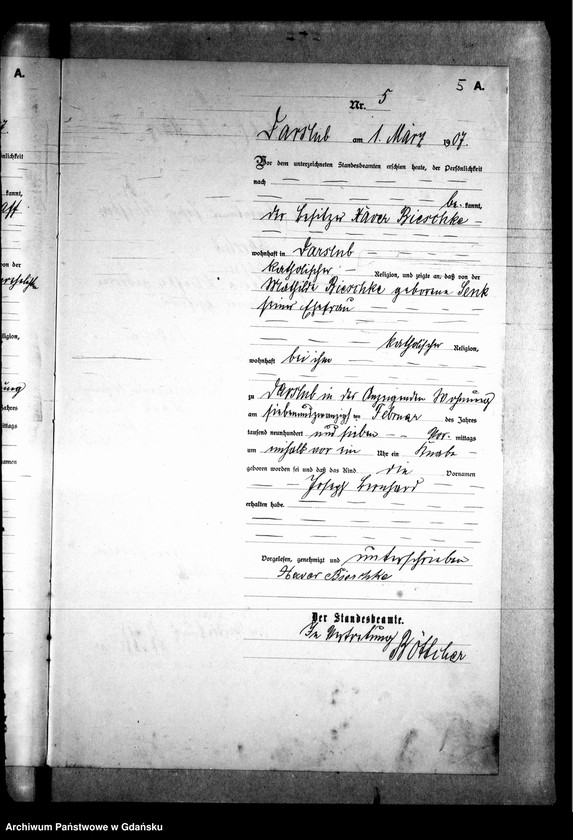 A.
5 A.
Nr. 5
Darslub am 1. März 1907.
Vor dem unterzeichneten Standesbeamten erschien heute, der Persönlichkeit
nach
be kannt,
der Besitzer Xaver Bieschke
wohnhaft in Darslub
katholischer Religion, und zeigte an, daß von der
Mathilde Bieschke geborene Senk
seiner Ehefrau
katholischer Religion,
wohnhaft bei ihm
zu Darslub in der Anzeigenden Wohnung
am siebenundzwanzigsten Februar des Jahres
tausend neunhundert und sieben Vor mittags
um einhalb vor ein Uhr ein Knabe
geboren worden sei und daß das Kind die Vornamen
Joseph Bernhard
erhalten habe.
Vorgelesen, genehmigt und unterschrieben
Xaver Bieschke
Der Standesbeamte.
In Vertretung Böttcher
Archiwum Państwowe w Gdańsku